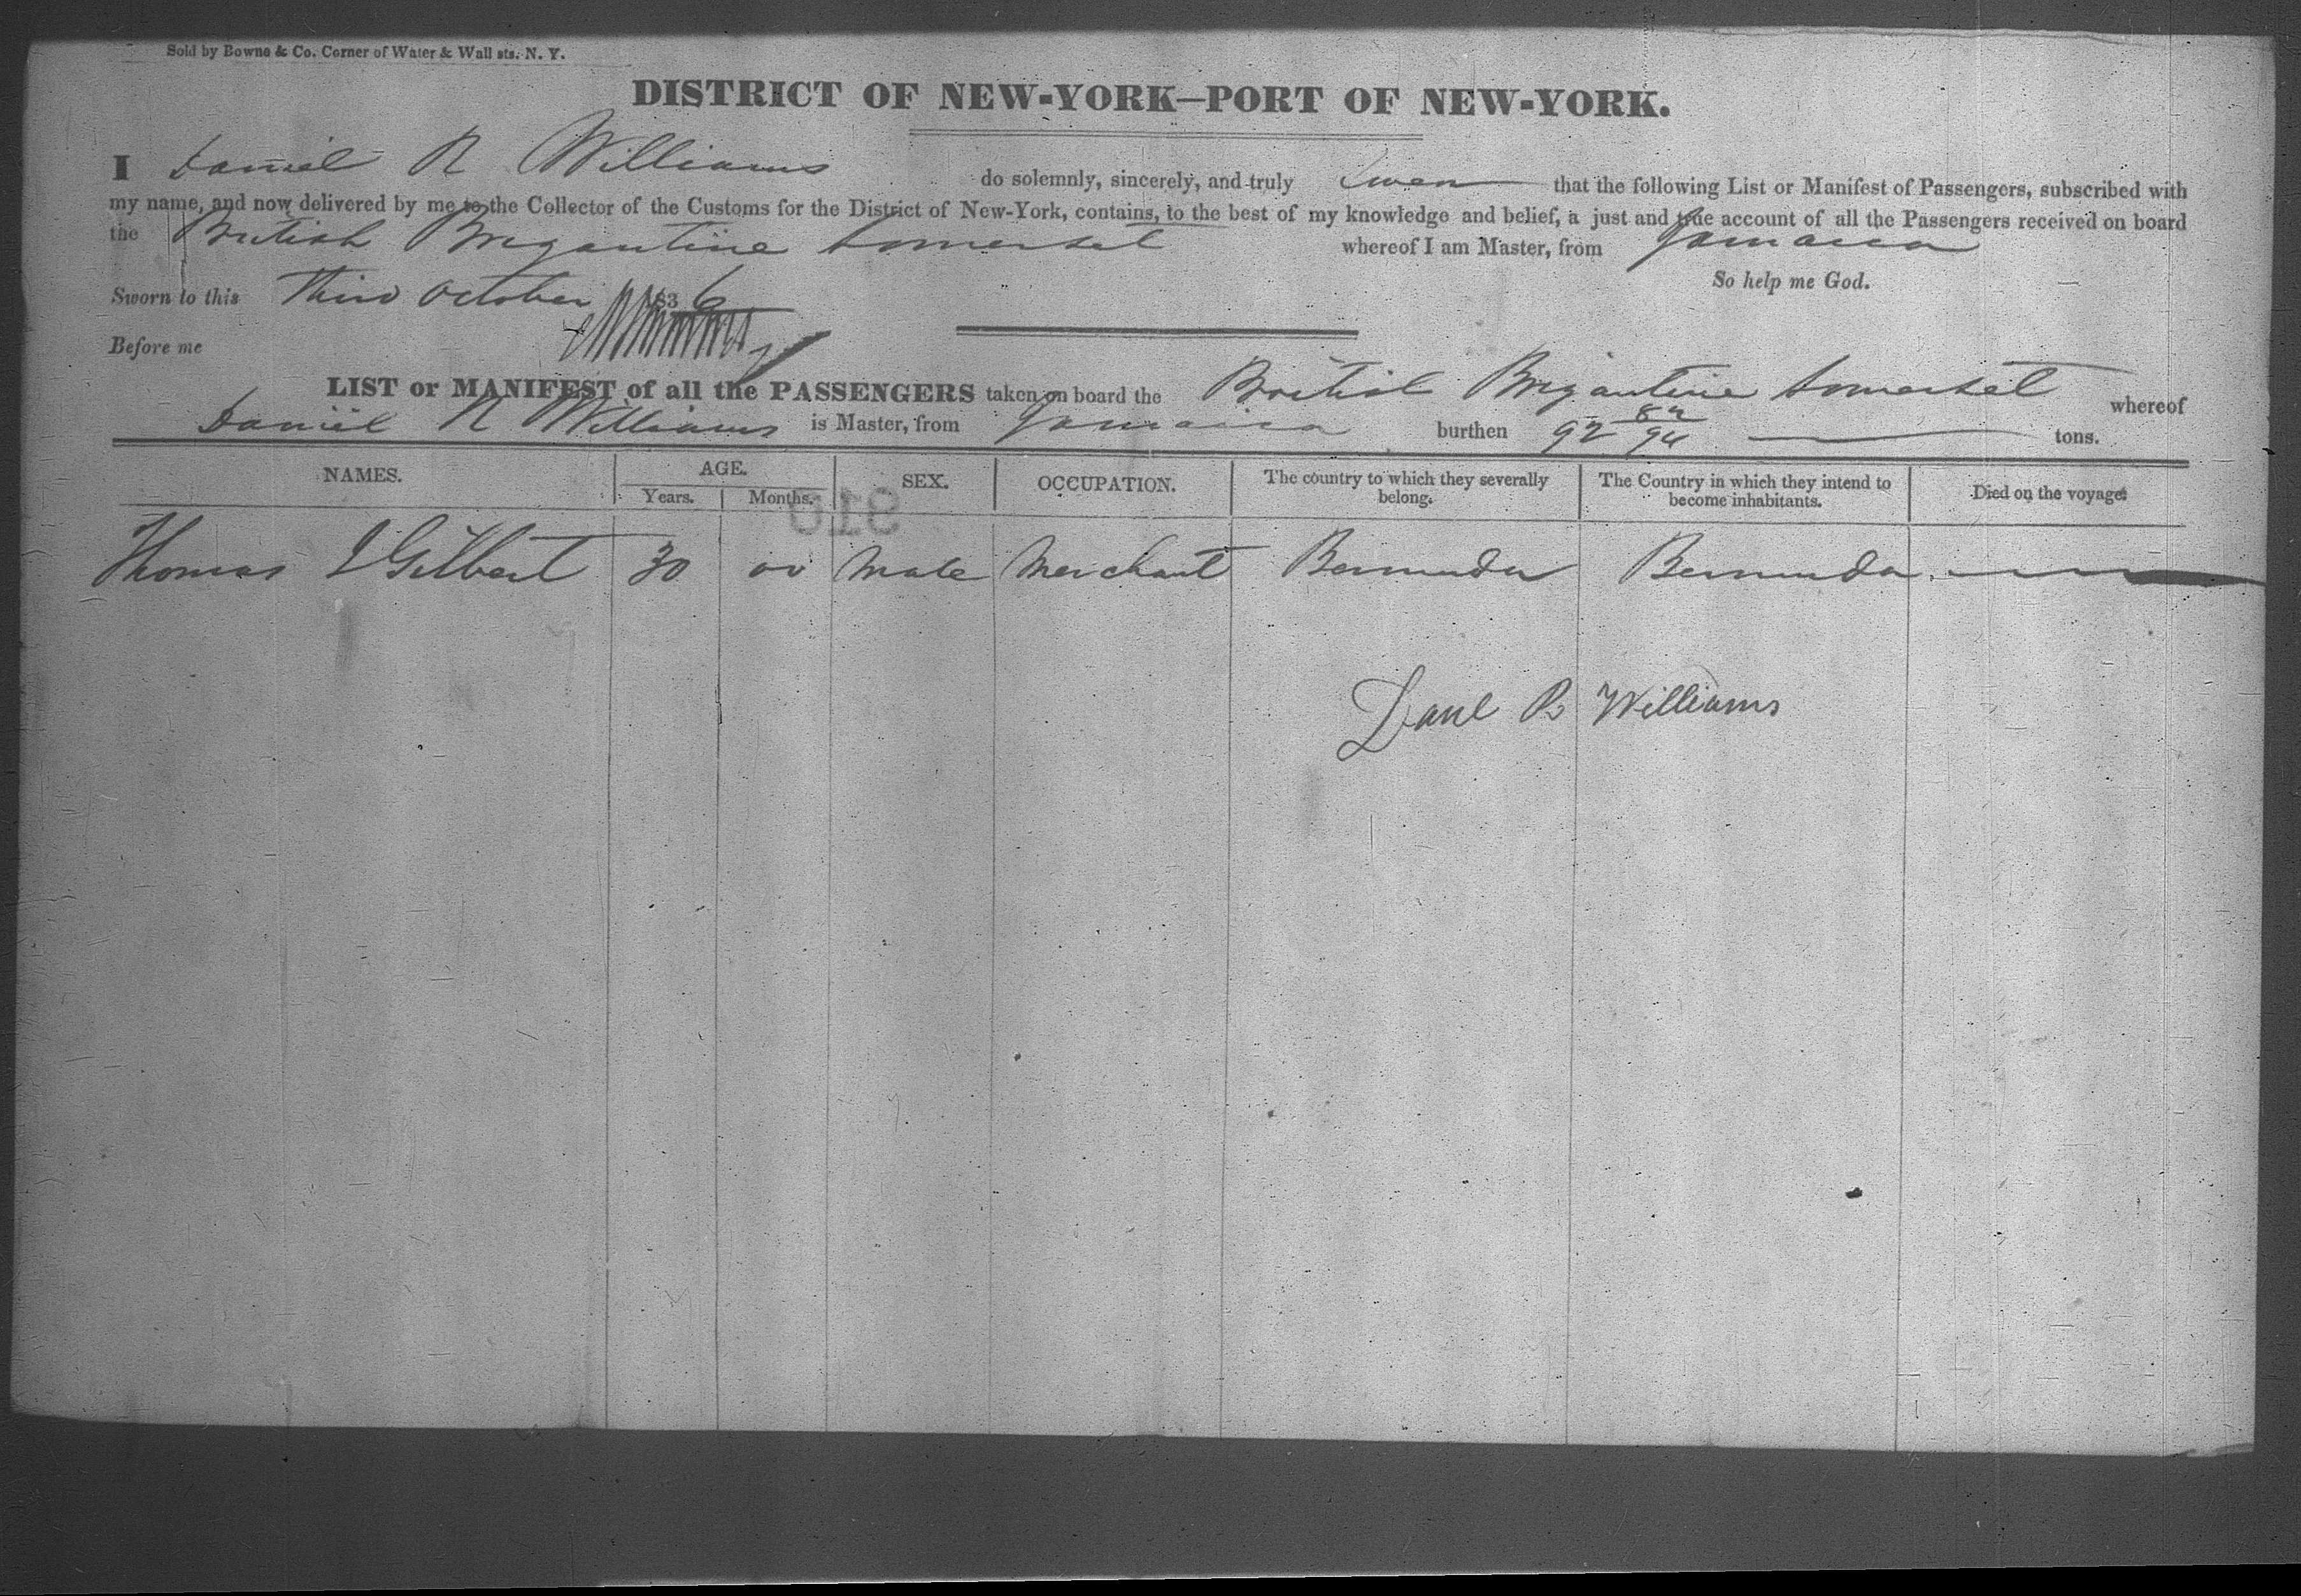 Sold by Bowne & Co. Corner of Water & Wall sts. N. Y.
DISTRICT OF NEW-YORK—PORT OF NEW-YORK.
I Daniel R Williams do solemnly, sincerely, and truly Swear that the following List or Manifest of Passengers, subscribed with
my name, and now delivered by me to the Collector of the Customs for the District of New-York, contains, to the best of my knowledge and belief, a just and true account of all the Passengers received on board
the British Brigantine Somerset whereof I am Master, from Jamaica
So help me God.
Sworn to this Third October 1836
Before me
LIST or MANIFEST of all the PASSENGERS taken on board the British Brigantine Somerset whereof
Daniel R Williams is Master, from Jamaica burthen 92 tons.
NAMES. AGE. Years. Months. SEX. OCCUPATION. The country to which they severally belong. The Country in which they intend to become inhabitants. Died on the voyage.
Thomas J Gilbert 30 oo Male Merchant Bermuda Bermuda
Danl R Williams